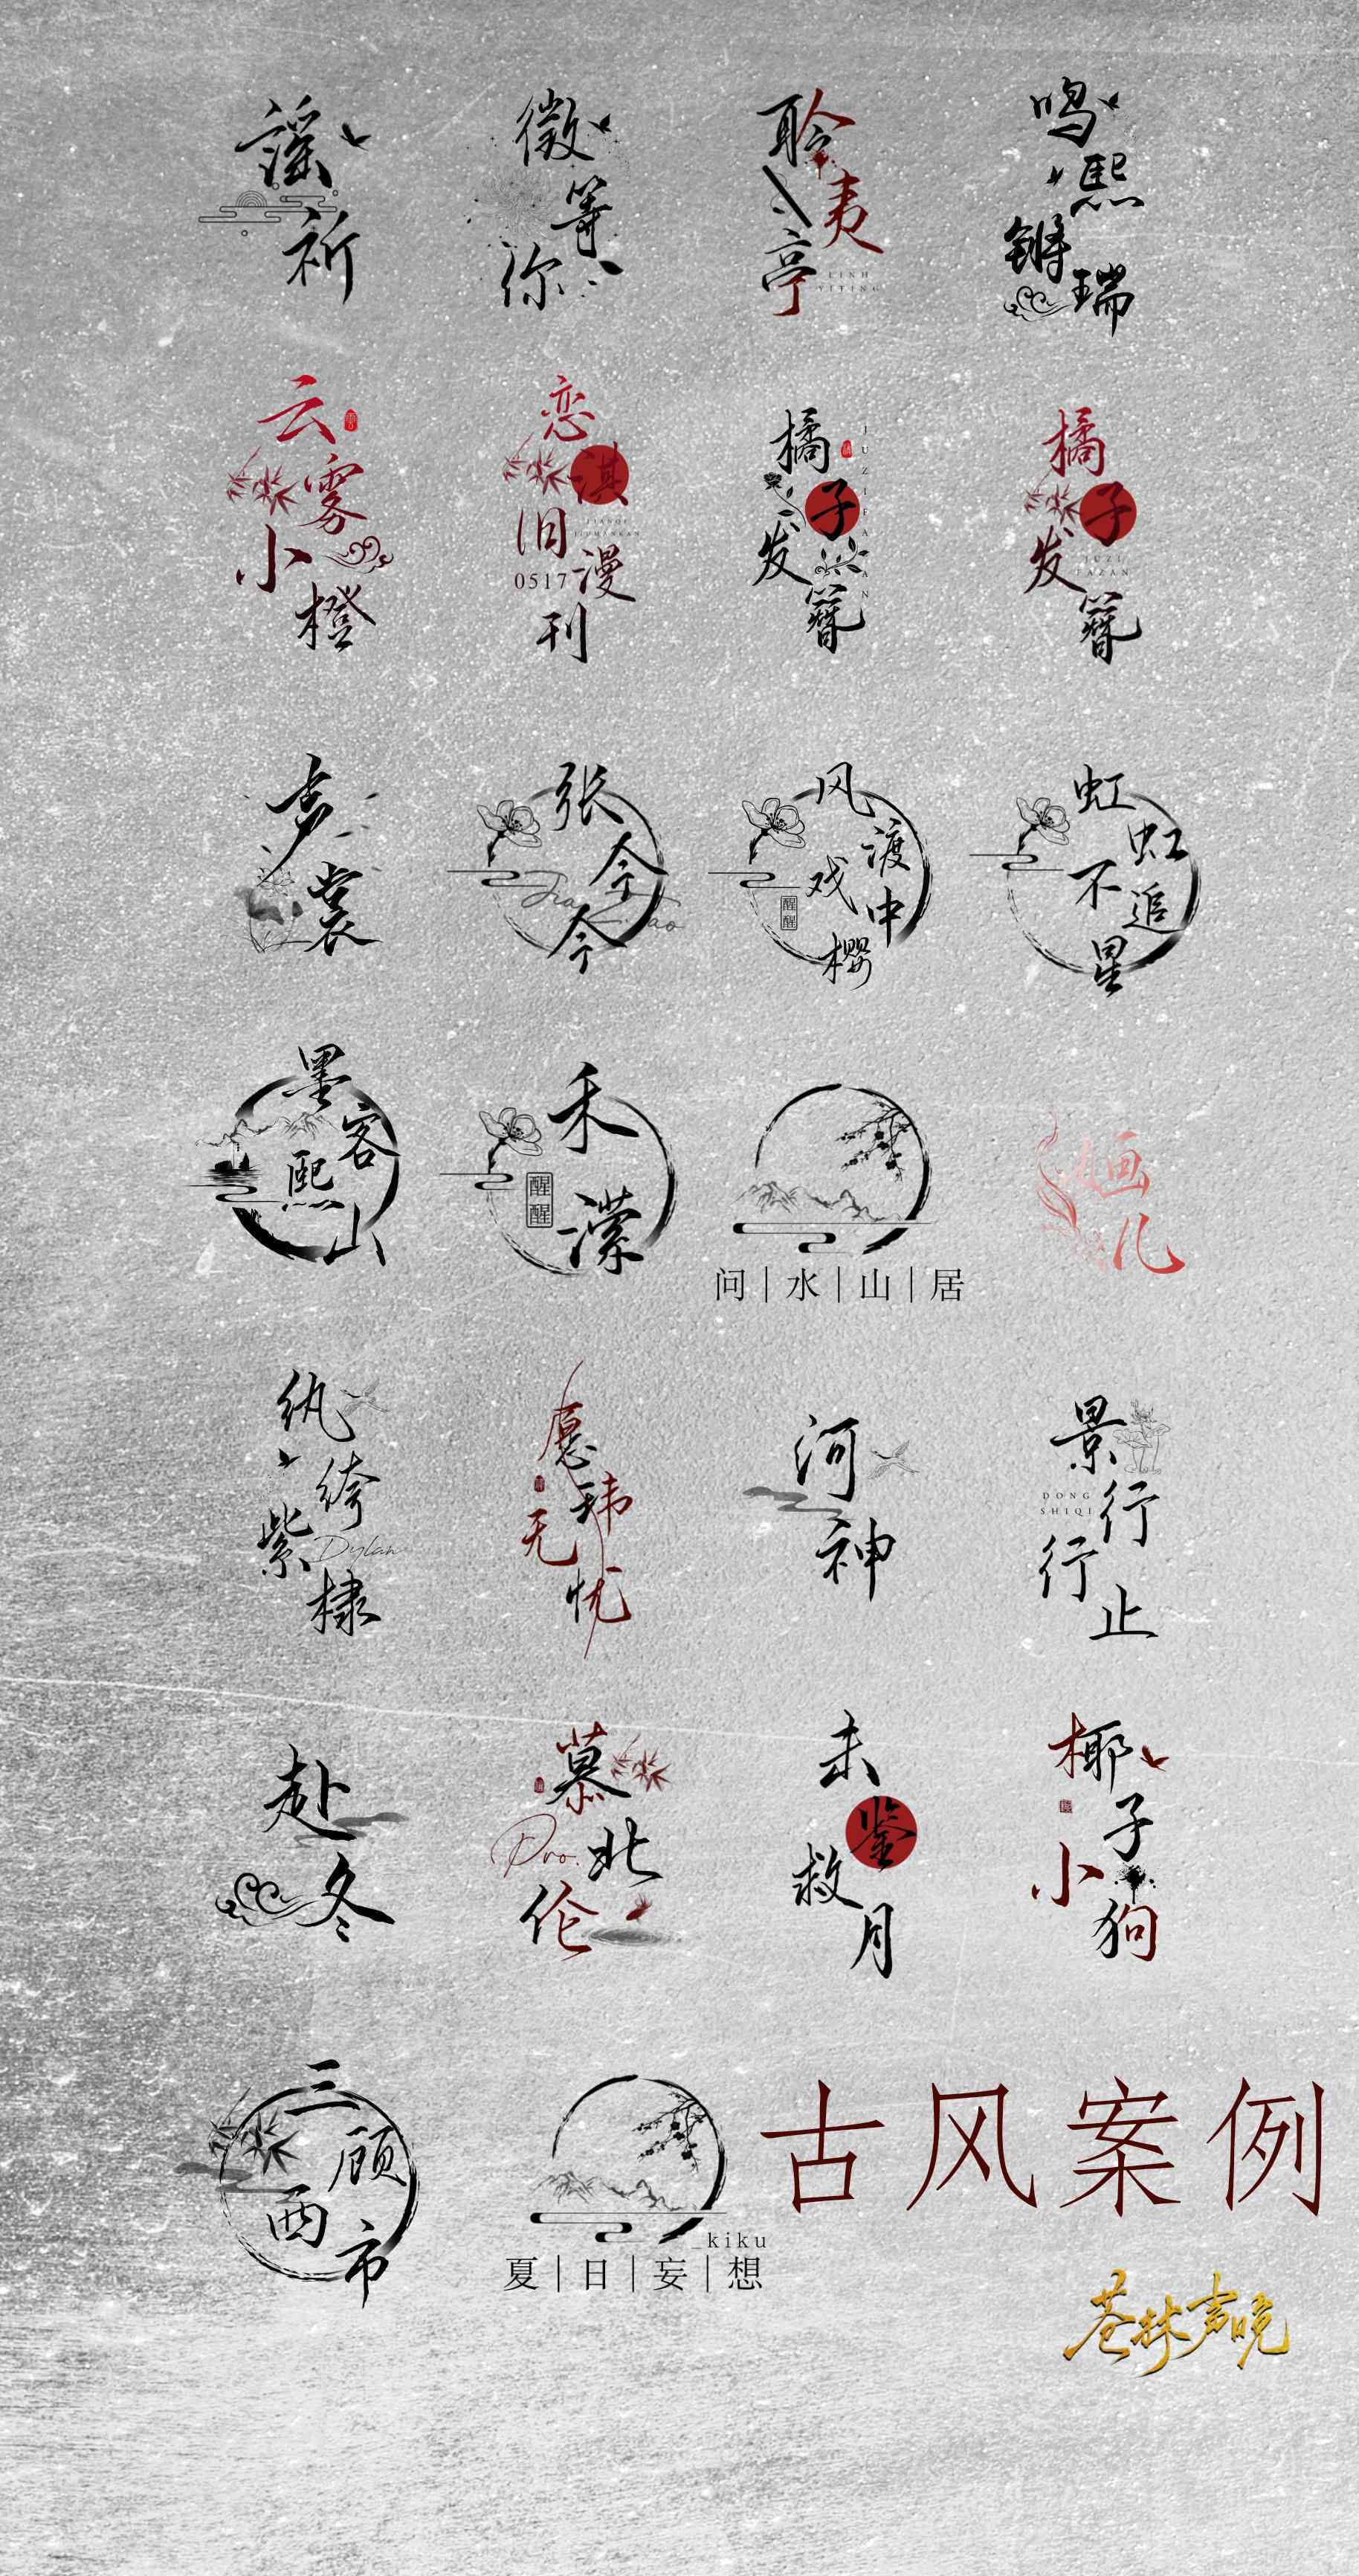 谣祈
徵等你
聆夷亭
LINH
YITING
鸣熙锵瑞
云雾小橙
恋淇旧漫刊
LIANQI
JIUMANKAN
0517
橘子发簪
JUZIFAZAN
橘子发簪
JUZI
FAZAN
声裳
张今今
风渡戏中樱
醒醒
虹虹不追星
墨客熙山
禾濴
醒醒
问|水|山|居
画儿
纨绔紫棣
Dylan
愿玮无忧
河神
景行行止
DONG
SHIQI
赴冬
慕北伦
Pro.
未鉴救月
椰子小狗
三顾西市
_kiku
夏|日|妄|想
古风案例
苍林声晚